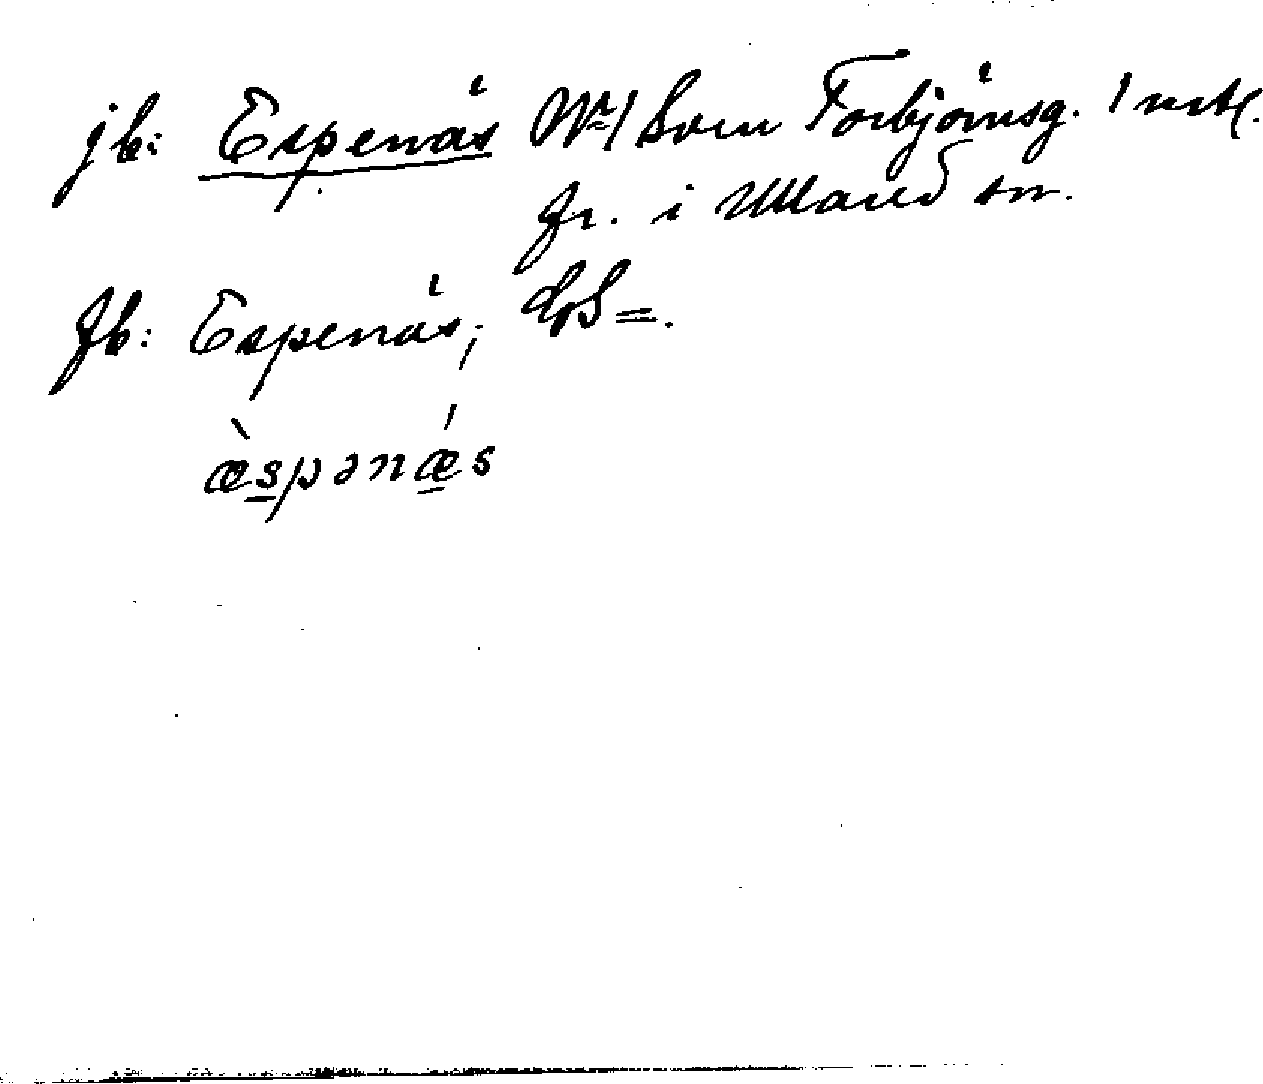 jb: Espenäs Som Torbjörnsg. 1 mtl.
fr. i Ulland sn.
Jb: Espenäs;
æ̀spənǽs